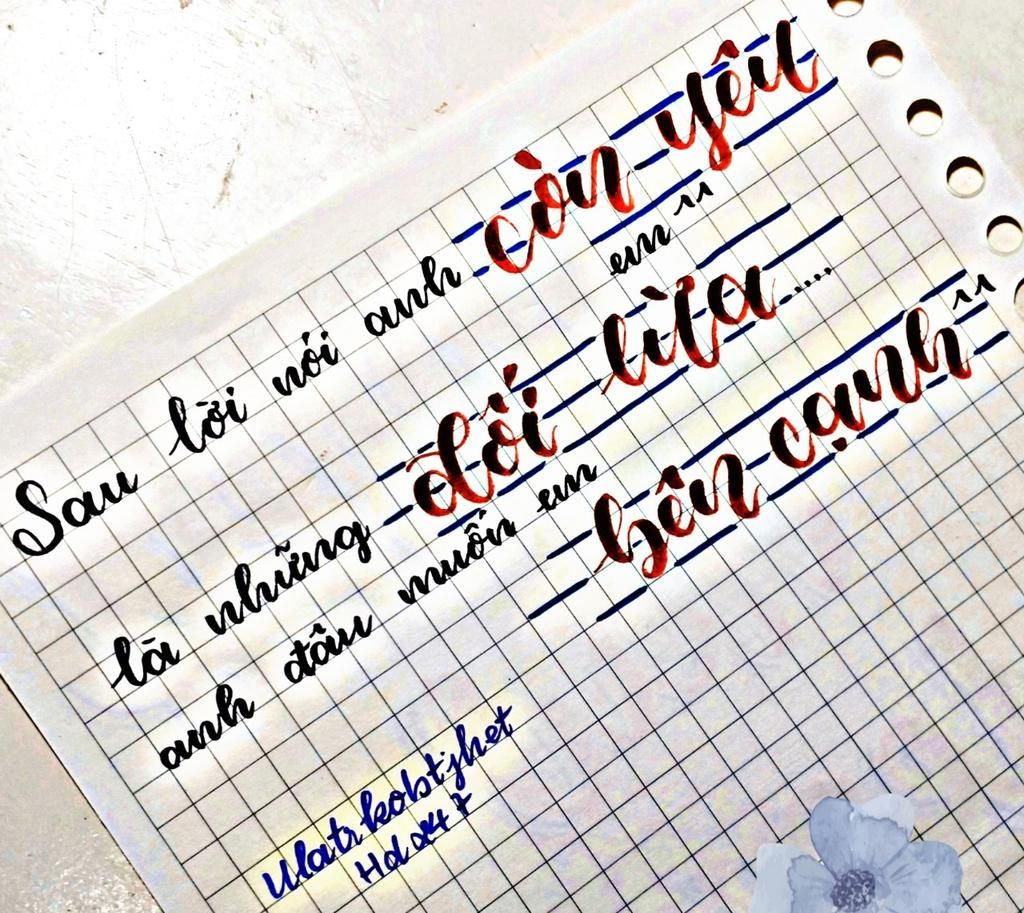 Sau lời nói anh còn yêu em ^^
là những dối lừa....
anh đâu muốn em bên cạnh ^^